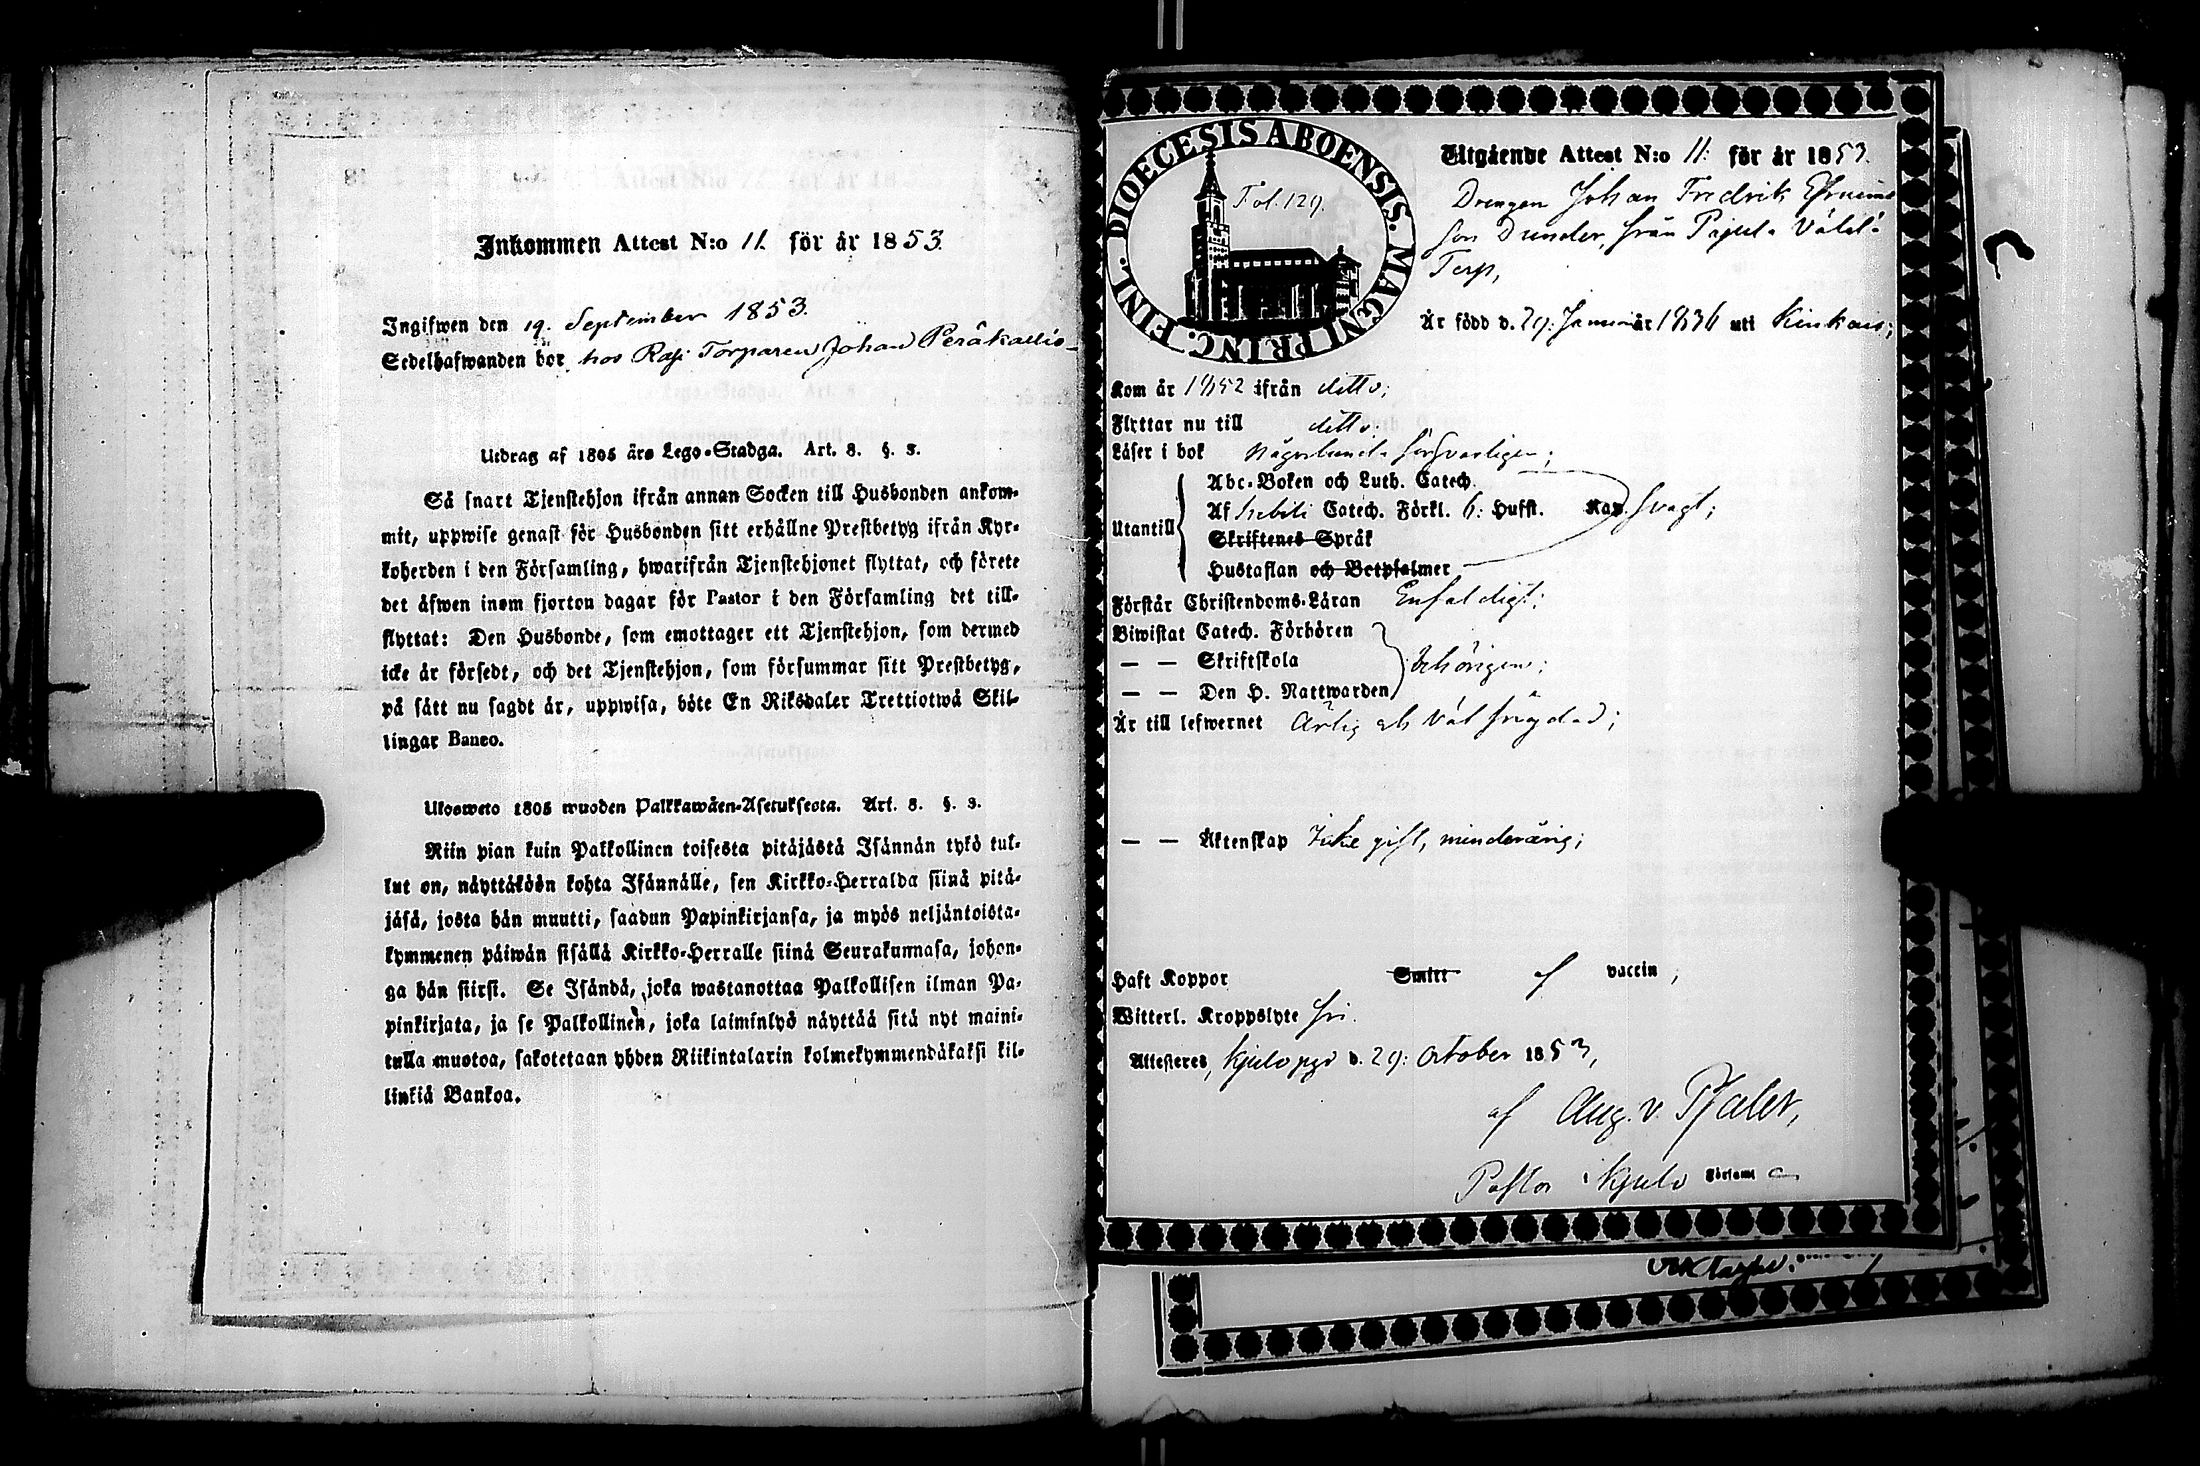 Inkommen Attest N:o 11. för år 1853.
Ingifwen den 19. September 1853.
Sedelhafwanden bor hos Torparen Johan Peräkallio
Utdrag af 1805 års Lego-Stadga. Art. 8. §. 3.
Så snart Tjenstehjon ifrån annan Socken till Husbonden ankom-
mit, uppwise genast för Husbonden sitt erhållne Prestbetyg ifrån Kyr-
koherden i den Församling, hwarifrån Tjenstehjonet flyttat, och förete
det äfwen inom fjorton dagar för Pastor i den Församling det till-
flyttat: Den Husbonde, som emottager ett Tjenstehjon, som dermed
icke är försedt, och det Tjenstehjon, som försummar sitt Prestbetyg,
på sätt nu sagdt är, uppwisa, böte En Riksdaler Trettiotwå Skil-
lingar Banco.
Ulosweto 1805 wuoden Palkkawäen-Asetuksesta. Art. 8. §. 3.
Niin pian kuin Palkollinen toisesta pitäjästä Isännän tykö tul-
lut on, näyttäköön kohta Isännälle, sen Kirkko-Herralda siinä pitä-
jäsä, josta hän muutti, saadun Papinkirjansa, ja myös neljäntoista-
kymmenen päiwän sisällä Kirkko-Herralle siinä Seurakunnasa, johon-
ga hän siirsi. Se Isändä, joka wastanottaa Palkollisen ilman Pa-
pinkirjata, ja se Palkollinen, joka laiminlyö näyttää sitä nyt maini-
tulla muotoa, sakotetaan yhden Riikintalarin kolmekymmendäkaksi kil-
linkiä Bankoa.
DIOECESIS ABOENSIS. MAGNI PRINC. FINL.
Fol. 129.
Utgående Attest N:o 11: för år 1853.
Drengen Johan Fredrik
son Dunder, från Pajula
Torp,
Är född d. 29: Januari år 1836 uti Kinkais;
Kom år 1852 ifrån ditto;
Flyttar nu till ditto.
Läser i bok någorlunda försvarligen;
Abc-Boken och Luth. Catech.
Utantill Af Catech. Förkl. 6: Hufst. Kap. svagt;
Skriftenes Språk
Hustaflan och Botpsalmer
Förstår Christendoms-Läran Enfaldigt;
Biwistat Catech. Förhören
— — Skriftskola behörigen;
— — Den H. Nattwarden
Är till lefwernet Ärlig och väl frägdad;
— — Äktenskap Icke gift, minderårig;
Haft Koppor Smitt af vaccin;
Witterl. Kroppslyte fri.
Attesteres, Kjulo pgd d. 29: October 1853,
af Aug. v. Pfaler,
Pastor i Kjulo Församl